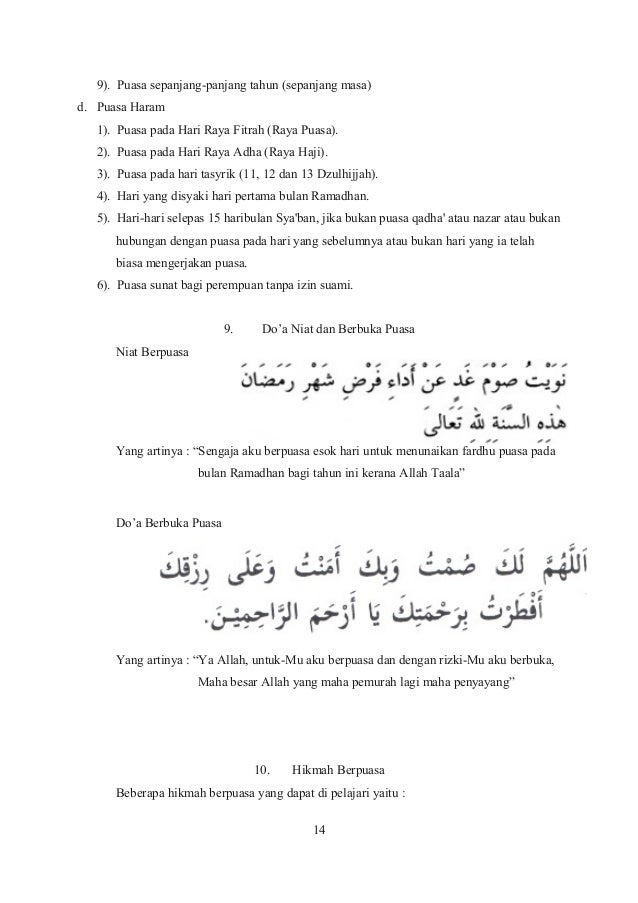 9). Puasa sepanjang-panjang tahun (sepanjang masa)
d. Puasa Haram
1). Puasa pada Hari Raya Fitrah (Raya Puasa).
2). Puasa pada Hari Raya Adha (Raya Haji).
3). Puasa pada hari tasyrik (11, 12 dan 13 Dzulhijjah).
4). Hari yang disyaki hari pertama bulan Ramadhan.
5). Hari-hari selepas 15 haribulan Sya'ban, jika bukan puasa qadha' atau nazar atau bukan
hubungan dengan puasa pada hari yang sebelumnya atau bukan hari yang ia telah
biasa mengerjakan puasa.
6). Puasa sunat bagi perempuan tanpa izin suami.
9. Do’a Niat dan Berbuka Puasa
Niat Berpuasa
نَوَيْتُ صَوْمَ غَدٍ عَنْ أَدَاءِ فَرْضِ شَهْرِ رَمَضَانَ
هٰذِهِ السَّنَةِ لِلّٰهِ تَعَالَى
Yang artinya : “Sengaja aku berpuasa esok hari untuk menunaikan fardhu puasa pada
bulan Ramadhan bagi tahun ini kerana Allah Taala”
Do’a Berbuka Puasa
اَللَّهُمَّ لَكَ صُمْتُ وَبِكَ أَمَنْتُ وَعَلَى رِزْقِكَ
أَفْطَرْتُ بِرَحْمَتِكَ يَا أَرْحَمَ الرَّاحِمِيْنَ.
Yang artinya : “Ya Allah, untuk-Mu aku berpuasa dan dengan rizki-Mu aku berbuka,
Maha besar Allah yang maha pemurah lagi maha penyayang”
10. Hikmah Berpuasa
Beberapa hikmah berpuasa yang dapat di pelajari yaitu :
14